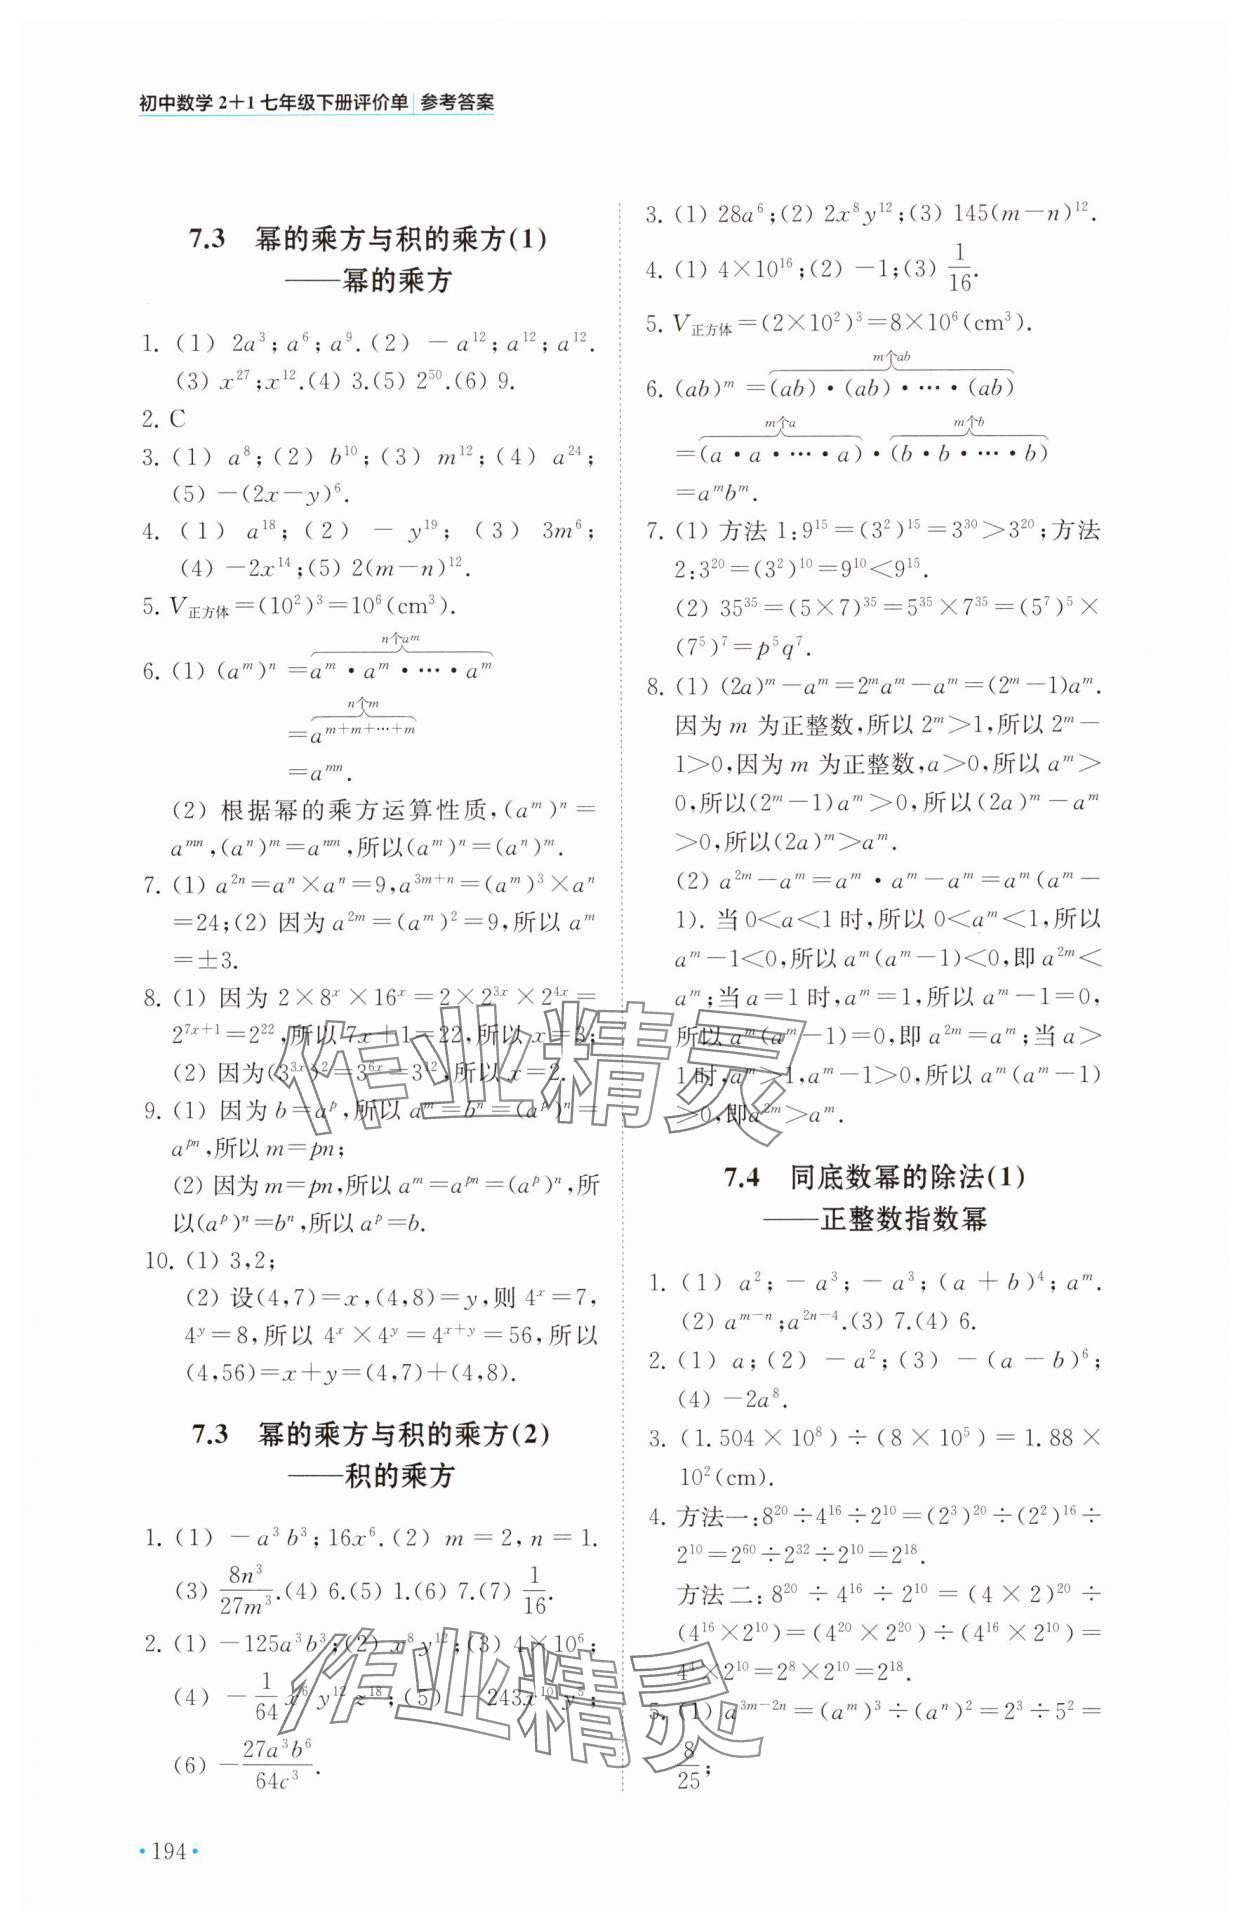 初中数学 2+1 七年级下册评价单 | 参考答案
7.3 幂的乘方与积的乘方(1)
——幂的乘方
1. (1) 2a³; a⁶; a⁹. (2) －a¹²; a¹²; a¹².
(3) x²⁷; x¹². (4) 3. (5) 2⁵⁰. (6) 9.
2. C
3. (1) a⁸; (2) b¹⁰; (3) m¹²; (4) a²⁴;
(5) －(2x－y)⁶.
4. (1) a¹⁸; (2) －y¹⁹; (3) 3m⁶;
(4) －2x¹⁴; (5) 2(m－n)¹².
5. V正方体＝(10²)³＝10⁶(cm³).
n个aᵐ
6. (1) (aᵐ)ⁿ ＝aᵐ·aᵐ·…·aᵐ
n个m
＝a^(m+m+…+m)
＝a^(mn).
(2) 根据幂的乘方运算性质,(aᵐ)ⁿ＝
a^(mn),(aⁿ)ᵐ＝a^(mn),所以(aᵐ)ⁿ＝(aⁿ)ᵐ.
7. (1) a²ⁿ＝aⁿ×aⁿ＝9,a^(3m+n)＝(aᵐ)³×aⁿ
＝24;(2) 因为 a^(2m)＝(aᵐ)²＝9,所以 aᵐ
＝±3.
8. (1) 因为 2×8ˣ×16ˣ＝2×2^(3x)×2^(4x)＝
2^(7x+1)＝2²²,所以 7x＋1＝22,所以 x＝3;
(2) 因为(3^(3x))²＝3^(6x)＝3¹²,所以 x＝2.
9. (1) 因为 b＝aᵖ,所以 aᵐ＝bⁿ＝(aᵖ)ⁿ＝
a^(pn),所以 m＝pn;
(2) 因为 m＝pn,所以 aᵐ＝a^(pn)＝(aᵖ)ⁿ,所
以(aᵖ)ⁿ＝bⁿ,所以 aᵖ＝b.
10. (1) 3,2;
(2) 设(4,7)＝x,(4,8)＝y,则 4ˣ＝7,
4ʸ＝8,所以 4ˣ×4ʸ＝4^(x+y)＝56,所以
(4,56)＝x＋y＝(4,7)＋(4,8).
7.3 幂的乘方与积的乘方(2)
——积的乘方
1. (1) －a³b³; 16x⁶. (2) m＝2, n＝1.
(3) 8n³/27m³. (4) 6. (5) 1. (6) 7. (7) 1/16.
2. (1) －125a³b³; (2) x⁸y¹²; (3) 4×10⁶;
(4) －1/64 x⁶y¹²z¹⁸; (5) －243x¹⁰y⁵;
(6) －27a³b⁶/64c³.
3. (1) 28a⁶; (2) 2x⁸y¹²; (3) 145(m－n)¹².
4. (1) 4×10¹⁶; (2) －1; (3) 1/16.
5. V正方体＝(2×10²)³＝8×10⁶(cm³).
m个ab
6. (ab)ᵐ ＝(ab)·(ab)·…·(ab)
m个a m个b
＝(a·a·…·a)·(b·b·…·b)
＝aᵐbᵐ.
7. (1) 方法 1:9¹⁵＝(3²)¹⁵＝3³⁰＞3²⁰;方法
2:3²⁰＝(3²)¹⁰＝9¹⁰＜9¹⁵.
(2) 35³⁵＝(5×7)³⁵＝5³⁵×7³⁵＝(5⁷)⁵×
(7⁵)⁷＝p⁵q⁷.
8. (1) (2a)ᵐ－aᵐ＝2ᵐaᵐ－aᵐ＝(2ᵐ－1)aᵐ.
因为 m 为正整数,所以 2ᵐ＞1,所以 2ᵐ－
1＞0,因为 m 为正整数,a＞0,所以 aᵐ＞
0,所以(2ᵐ－1)aᵐ＞0,所以(2a)ᵐ－aᵐ
＞0,所以(2a)ᵐ＞aᵐ.
(2) a^(2m)－aᵐ＝aᵐ·aᵐ－aᵐ＝aᵐ(aᵐ－
1). 当 0＜a＜1 时,所以 0＜aᵐ＜1,所以
aᵐ－1＜0,所以 aᵐ(aᵐ－1)＜0,即 a^(2m)＜
aᵐ;当 a＝1 时,aᵐ＝1,所以 aᵐ－1＝0,
所以 aᵐ(aᵐ－1)＝0,即 a^(2m)＝aᵐ;当 a＞
1 时,aᵐ＞1,aᵐ－1＞0,所以 aᵐ(aᵐ－1)
＞0,即 a^(2m)＞aᵐ.
7.4 同底数幂的除法(1)
——正整数指数幂
1. (1) a²; －a³; －a³; (a＋b)⁴; aᵐ.
(2) a^(m－n); a^(2n－4). (3) 7. (4) 6.
2. (1) a; (2) －a²; (3) －(a－b)⁶;
(4) －2a⁸.
3. (1.504×10⁸)÷(8×10⁵)＝1.88×
10²(cm).
4. 方法一:8²⁰÷4¹⁶÷2¹⁰＝(2³)²⁰÷(2²)¹⁶÷
2¹⁰＝2⁶⁰÷2³²÷2¹⁰＝2¹⁸.
方法二:8²⁰÷4¹⁶÷2¹⁰＝(4×2)²⁰÷
(4¹⁶×2¹⁰)＝(4²⁰×2²⁰)÷(4¹⁶×2¹⁰)＝
4⁴×2¹⁰＝2⁸×2¹⁰＝2¹⁸.
5. (1) a^(3m－2n)＝(aᵐ)³÷(aⁿ)²＝2³÷5²＝
8/25;
·194·
作业精灵
作业精灵